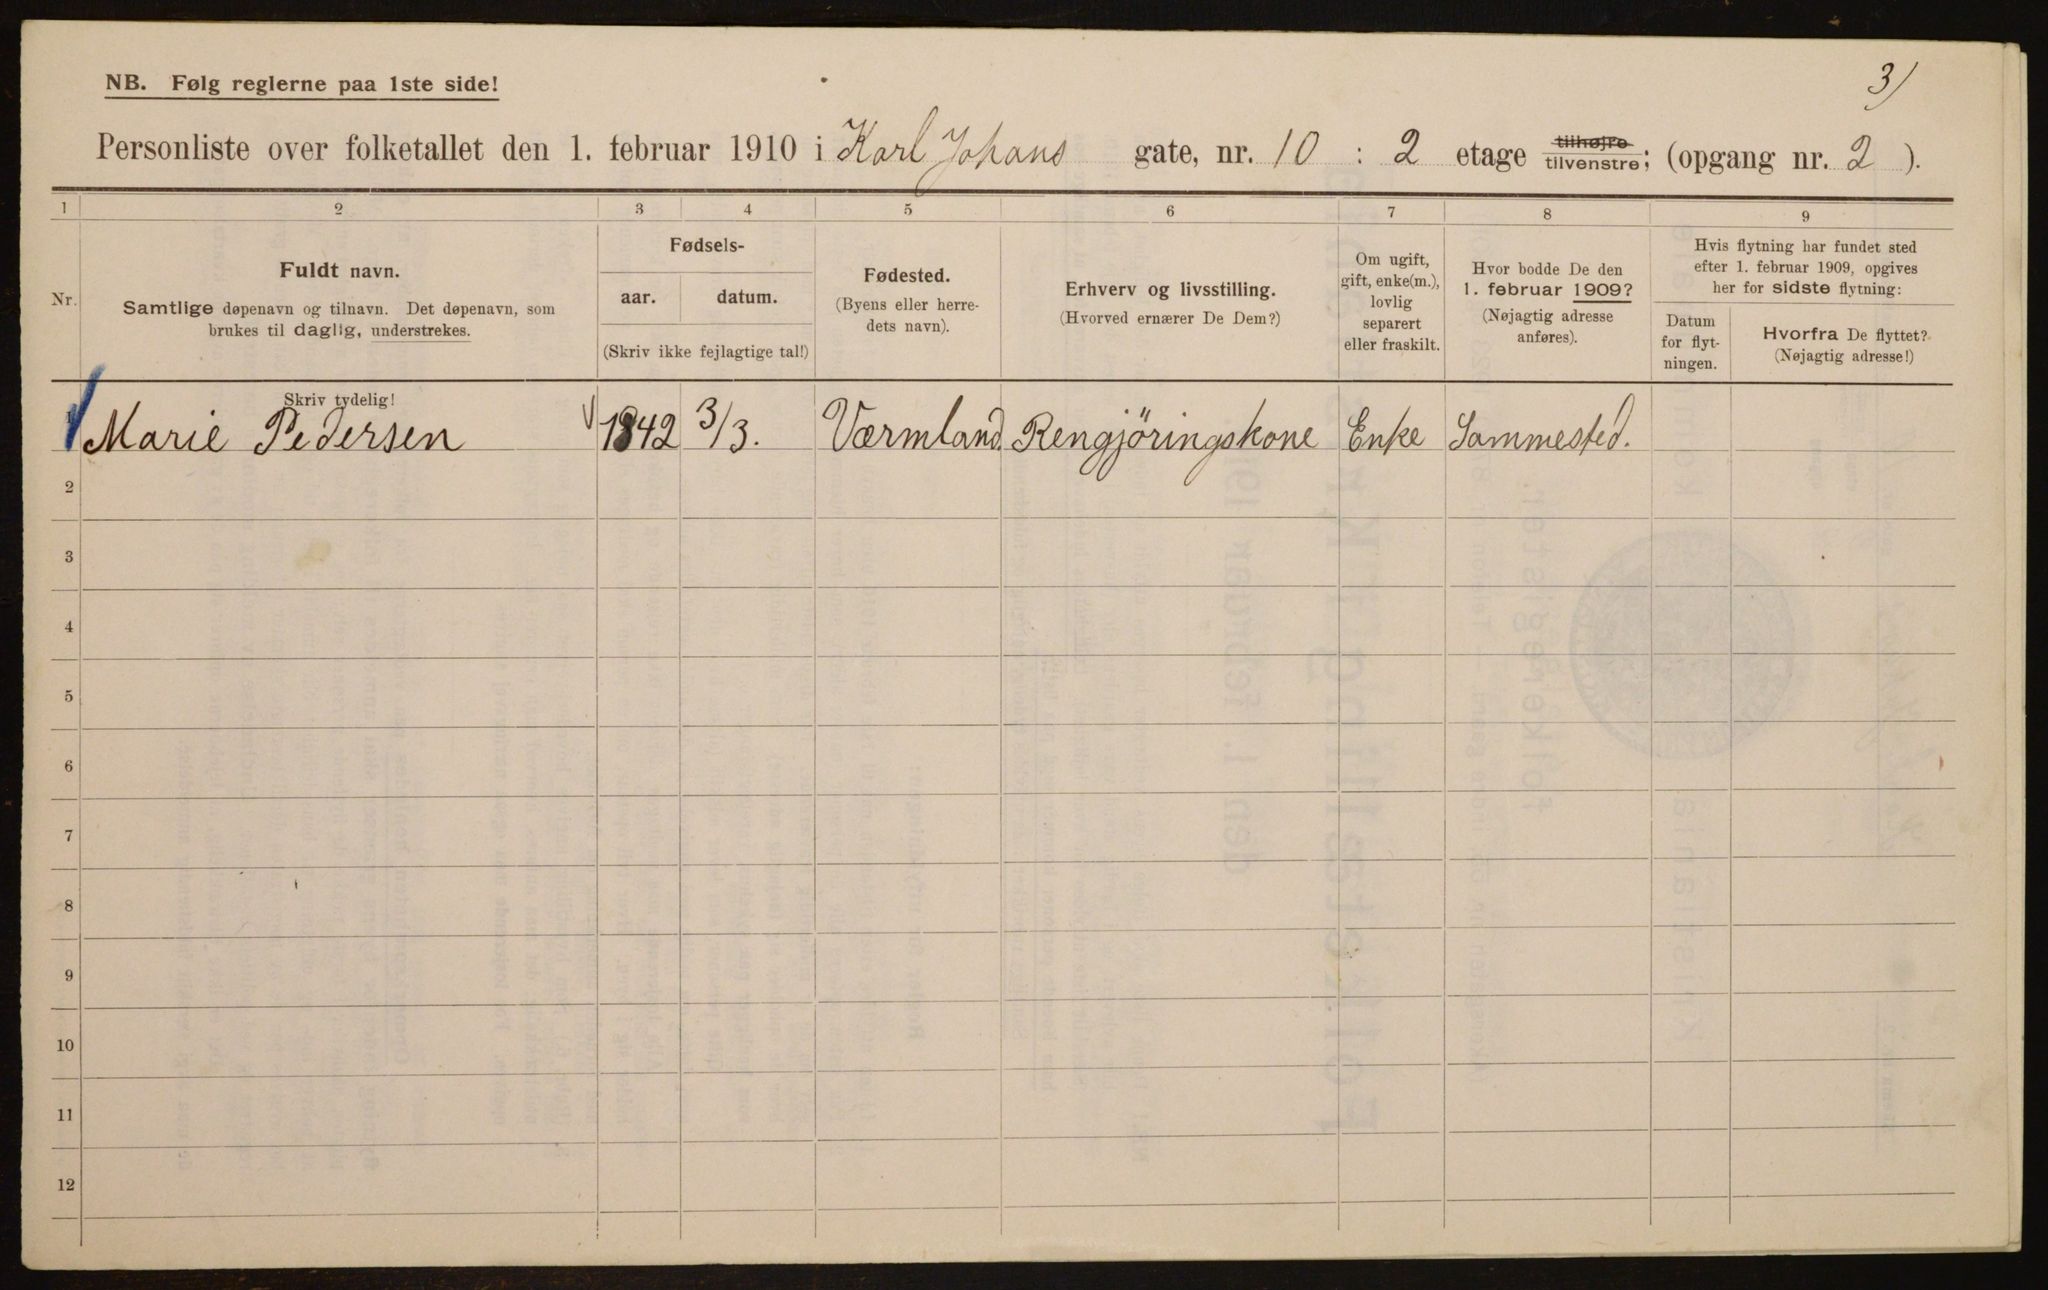 3)
NB. Følg reglerne paa 1ste side!
Personliste over folketallet den 1. februar 1910 i Karl Johans gate, nr. 10 : 2 etage tilhøjre tilvenstre; (opgang nr. 2 ).
1 2 3 4 5 6 7 8 9
Nr.
Fuldt navn.
Samtlige døpenavn og tilnavn. Det døpenavn, som
brukes til daglig, understrekes.
Fødsels-
aar. datum.
(Skriv ikke fejlagtige tal!)
Fødested.
(Byens eller herre-
dets navn).
Erhverv og livsstilling.
(Hvorved ernærer De Dem?)
Om ugift,
gift, enke(m.),
lovlig
separert
eller fraskilt.
Hvor bodde De den
1. februar 1909?
(Nøjagtig adresse
anføres).
Hvis flytning har fundet sted
efter 1. februar 1909, opgives
her for sidste flytning:
Datum
for flyt-
ningen.
Hvorfra De flyttet?
(Nøjagtig adresse!)
Skriv tydelig!
1 Marie Pedersen 1842 3/3. Værmland. Rengjöringskone Enke Sammested.
2
3
4
5
6
7
8
9
10
11
12